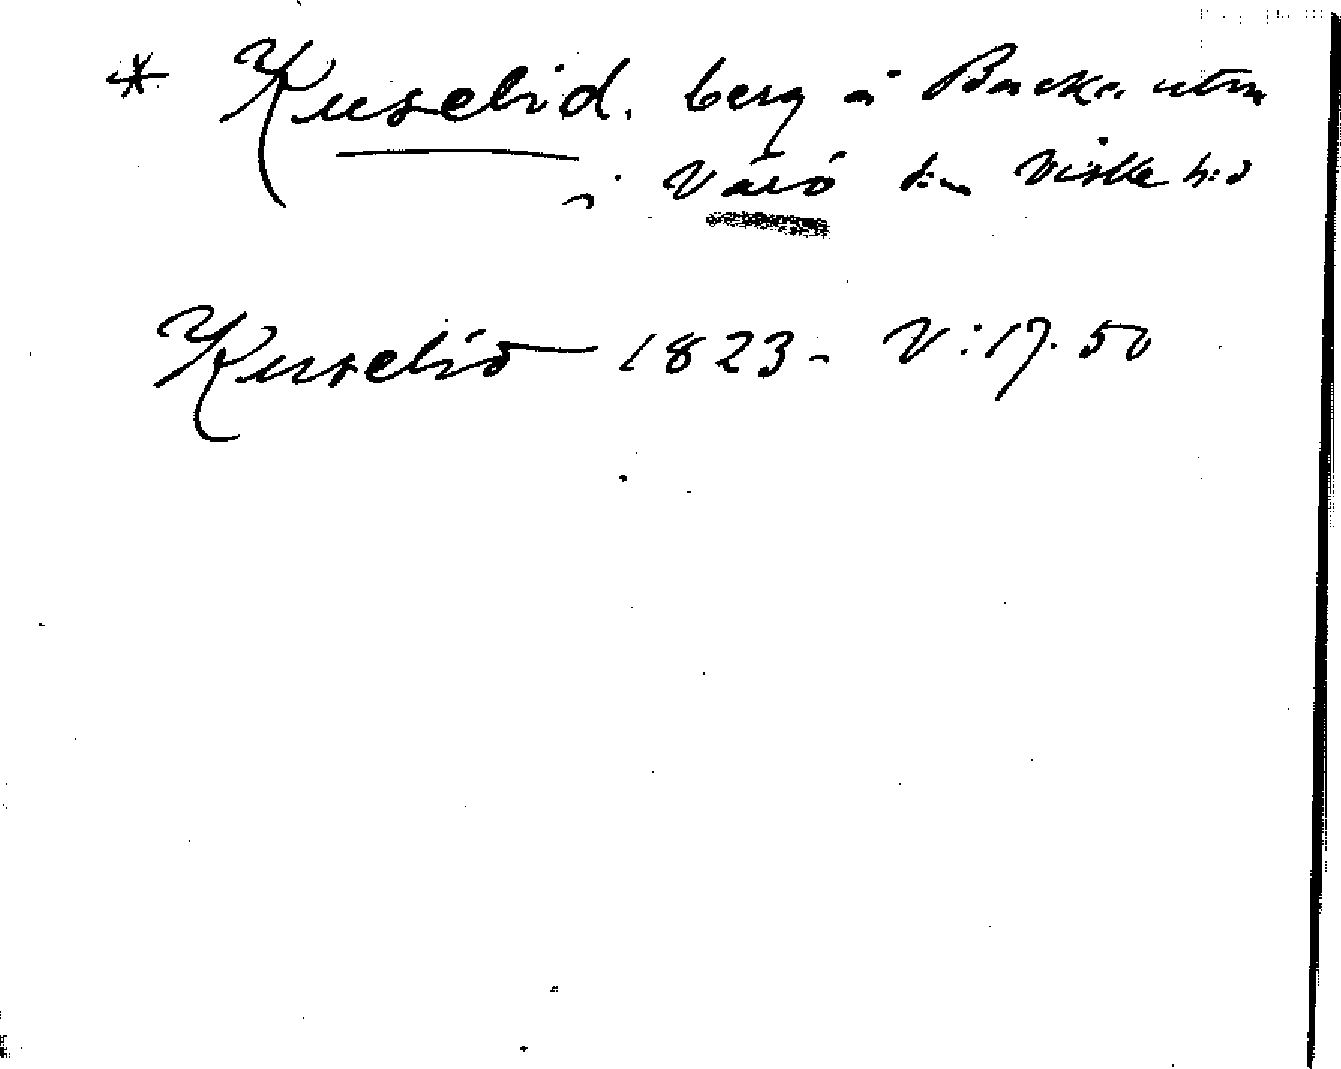 * Kuselid. berg å Backa utm
i Värö s:n Viske h:d
Kuselid 1823 - V:17.50